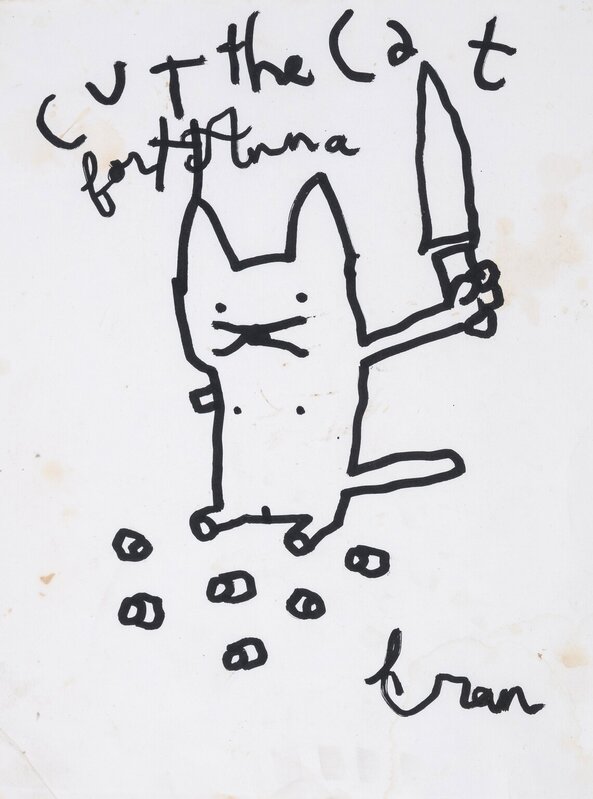 cut the cat
for Anna
fran